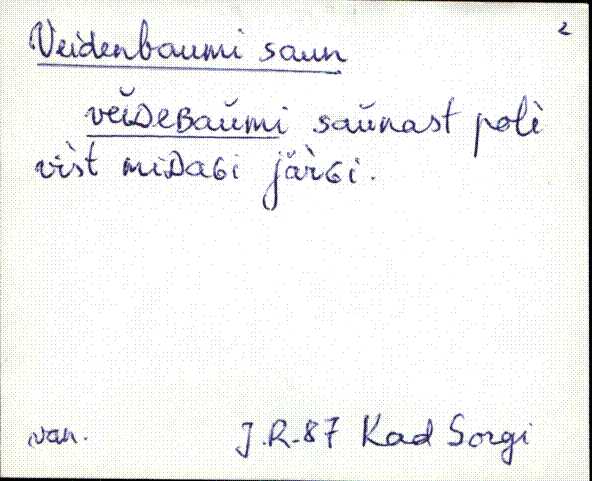 2
Veidenbaumi saun
vĕiDeBaŭmi saŭnast polè
vìst miDaGi jär̀Gi.
van. J.R-87 Kad Sorgi